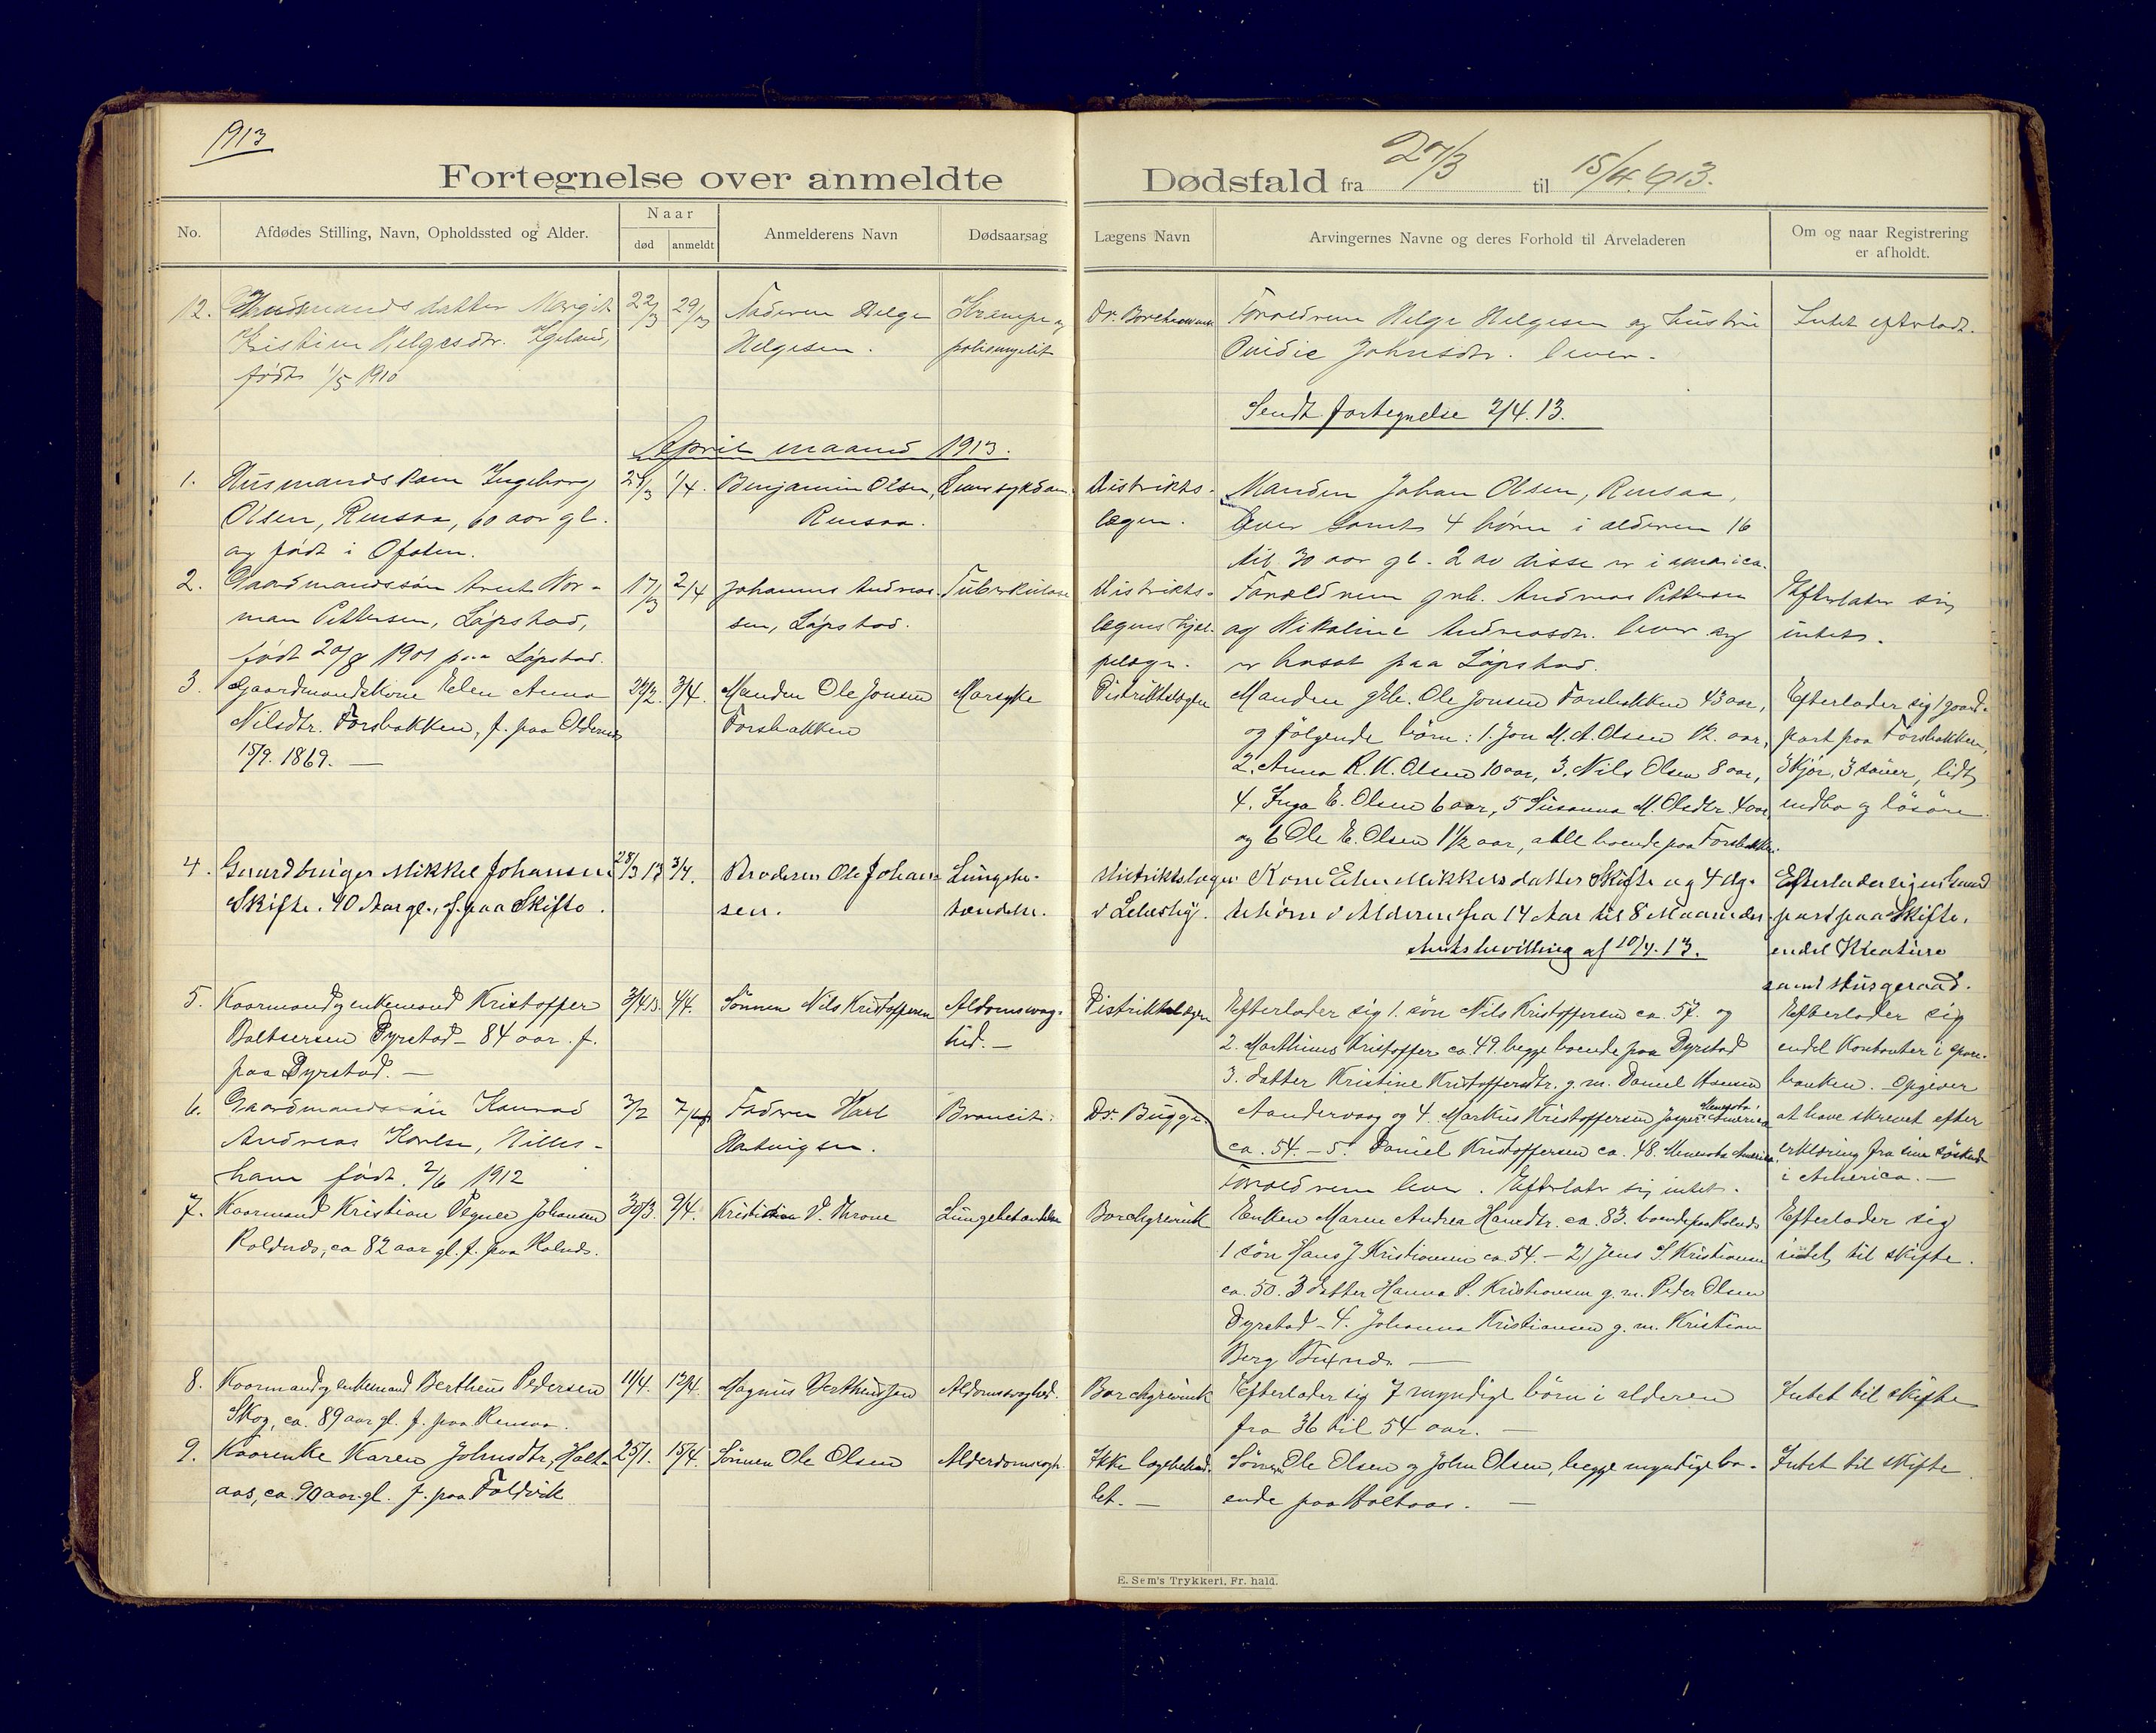 1913
Fortegnelse over anmeldte Dødsfald fra 27/3 til 15/4 1913.
No. Afdødes Stilling, Navn, Opholdssted og Alder. Naar død anmeldt Anmelderens Navn Dødsaarsag Lægens Navn Arvingernes Navne og deres Forhold til Arveladeren Om og naar Registrering er afholdt.
12. datter Margit 22/3 29/3 Faderen Helge Krampe og Dr. Forældrene Helge Helgesen og hustru Intet efterladt.
Kristine Helgesdtr. Helgesen. poliomyelit Johnsdtr. lever.
født 1/5 1910
Sendt fortegnelse 2/4.13.
April maaned 1913.
1. Husmandskone Ingeborg 1/4. Benjamin Olsen, Distrikts- Manden Johan Olsen, Rensaa,
Olsen, Rensaa, 60 aar gl. Rensaa. lægen. lever samt 4 børn i alderen 16
og født i Ofoten. til 30 aar gl. 2 av disse er i amerika.
2. Gaardmandssøn Arent Nor- 17/3 2/4 Johannes Andreas- Tuberkulose Distrikts- Forældrene grb. Andreas Pettersen Efterlater sig
man Pettersen, Løpstad, sen, Løpstad. lægens hjæl- og Nikoline Andreasdtr. lever og intet.
født 20/8 1901 paa Løpstad. pelæge. er bosat paa Løpstad.
3. Gaardmandskone Elen Anna 3/4. Manden Ole Jonsen Marsyke Distriktslægen Manden grb. Ole Jonsen Forsbakken 43 aar, Efterlader sig 1 gaard-
Nilsdtr. Forsbakken, f. paa Oldernes Forsbakken og følgende børn: 1. Jon M. A. Olsen 12 aar, part paa Forsbakken,
15/9. 1869. — 2. Anna R. K. Olsen 10 aar, 3. Nils Olsen 8 aar, 3 kjør, 3 sauer, lidt
4. Inga E. Olsen 6 aar, 5 Susanna M. Olsdtr. 4 aar, indbo og løsøre
og 6 Ole E. Olsen 1½ aar, alle boende paa Forsbakken.
4. Gaardbruger Mikkel Johansen 28/3 13 3/4. Broderen Ole Johan- Lungebe- Distriktslægen Kone Elen Mikkelsdatter Skifte og 4 Efterlader sig en Gaard
Skifte. 40 Aar gl., f. paa Skifte. sen. tændelse. i børn i Alderen fra 14 Aar til 8 Maaneder. part paa Skifte,
Amtsbevilling af 10/4.13. endel Kreature
samt Husgeraad.
5. Kaarmand og enkemand Kristoffer 3/4 13. 4/4. Sønnen Nils Kristoffersen Aldomsvag- Distriktslægen Efterlader sig 1. søn Nils Kristoffersen ca. 57. og Efterlader sig
Baltsersen Dyrstad - 84 aar. f. hed. — 2. Marthinus Kristoffer ca. 49. begge boende paa Dyrstad endel Kontanter i spare-
paa Dyrstad. — 3. datter Kristine Kristoffersdtr. g. m. Daniel banken. Opgiver
6. Gaardmandssøn Konrad 3/2 Faderen Karl Dr. Bugge. og 4. Markus Kristoffersen Jasper Menesota Amerika at have skrevet efter
Andreas Karlsen, Hilles- Hartvigsen. ca. 54. - 5. Daniel Kristoffersen ca. 48. Menesota Amerika. erklæring fra sine søskende
havn født. 2/6 1912 Forældrene lever. Efterlater sig intet. i America. —
7. Kaarmand Kristian Johansen 30/3. 9/4. Kristian Throne Lungebetændelse Borchgrevink Enken Maren Andrea Hansdtr. ca. 83. boende paa Efterlader sig
ca 82 aar gl. f. paa 1 søn Hans J Kristiansen ca. 54. - 2) Jens S. Kristiansen intet til skifte.
ca. 50. 3 datter Hanna P. Kristiansen g. m. Peder Olsen
Dyrstad - 4. Johanna Kristiansen g. m. Kristian
Berg —
8. Kaarmand og enkemand Bertheus Pedersen 11/4. 12/4. Magnus Bertheussen Aldomsvaghed. Borchgrevink Efterlader sig 7 myndige børn i alderen Intet til skifte
Skog, ca. 89 aar gl. f. paa Rensaa. fra 36 til 54 aar. —
9. Kaarenke Karen Johnsdtr, Holt- 25/1. 15/4. Sønnen Ole Olsen Alderdomsvagh. Ikke lægebehand- Sønnen Ole Olsen og John Olsen, begge myndige bo- Intet til skifte
aas, ca. 90 aar gl. f. paa Foldvik let. — ende paa Holtaas. —
E. Sem's Trykkeri, Fr. hald.